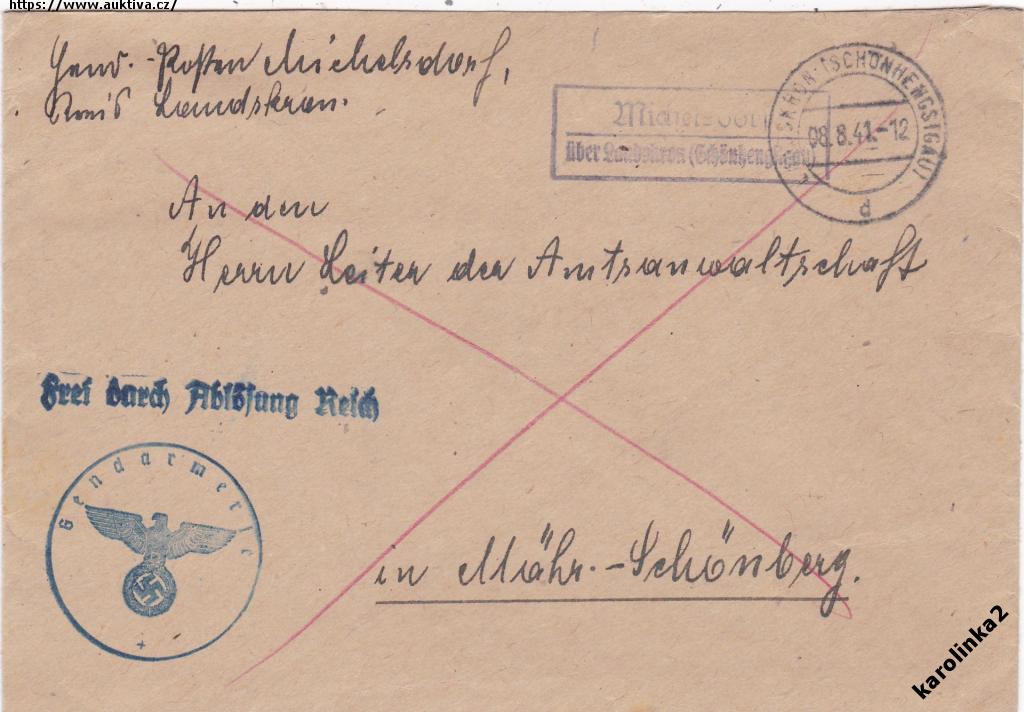 https://www.auktiva.cz/
Gend.-Posten Michelsdorf,
Kreis Landskron.
Michelsdorf
über Landskron (Schönhengstgau)
LANDSKRON (SCHÖNHENGSTGAU)
08.8.41.-12
d
An den
Herrn Leiter der Amtsanwaltschaft
Frei durch Ablösung Reich
Gendarmerie
in Mähr.-Schönberg.
karolinka2